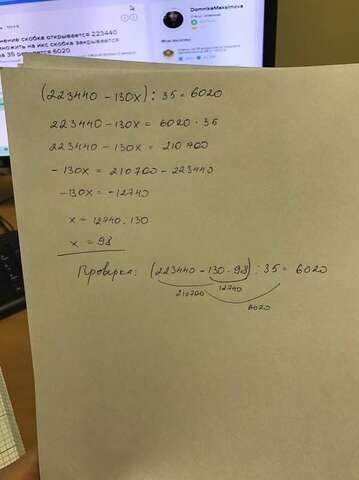 нение скобка открывается 223440
ножить на икс скобка закрывается
а 35 равняется 6020
DominikaMaksimova
(223440 - 130x) : 35 = 6020
223440 - 130x = 6020 · 35
223440 - 130x = 210700
-130x = 210700 - 223440
-130x = -12740
x = 12740 : 130
x = 98
Проверка: (223440 - 130 · 98) : 35 = 6020
210700 12740
6020